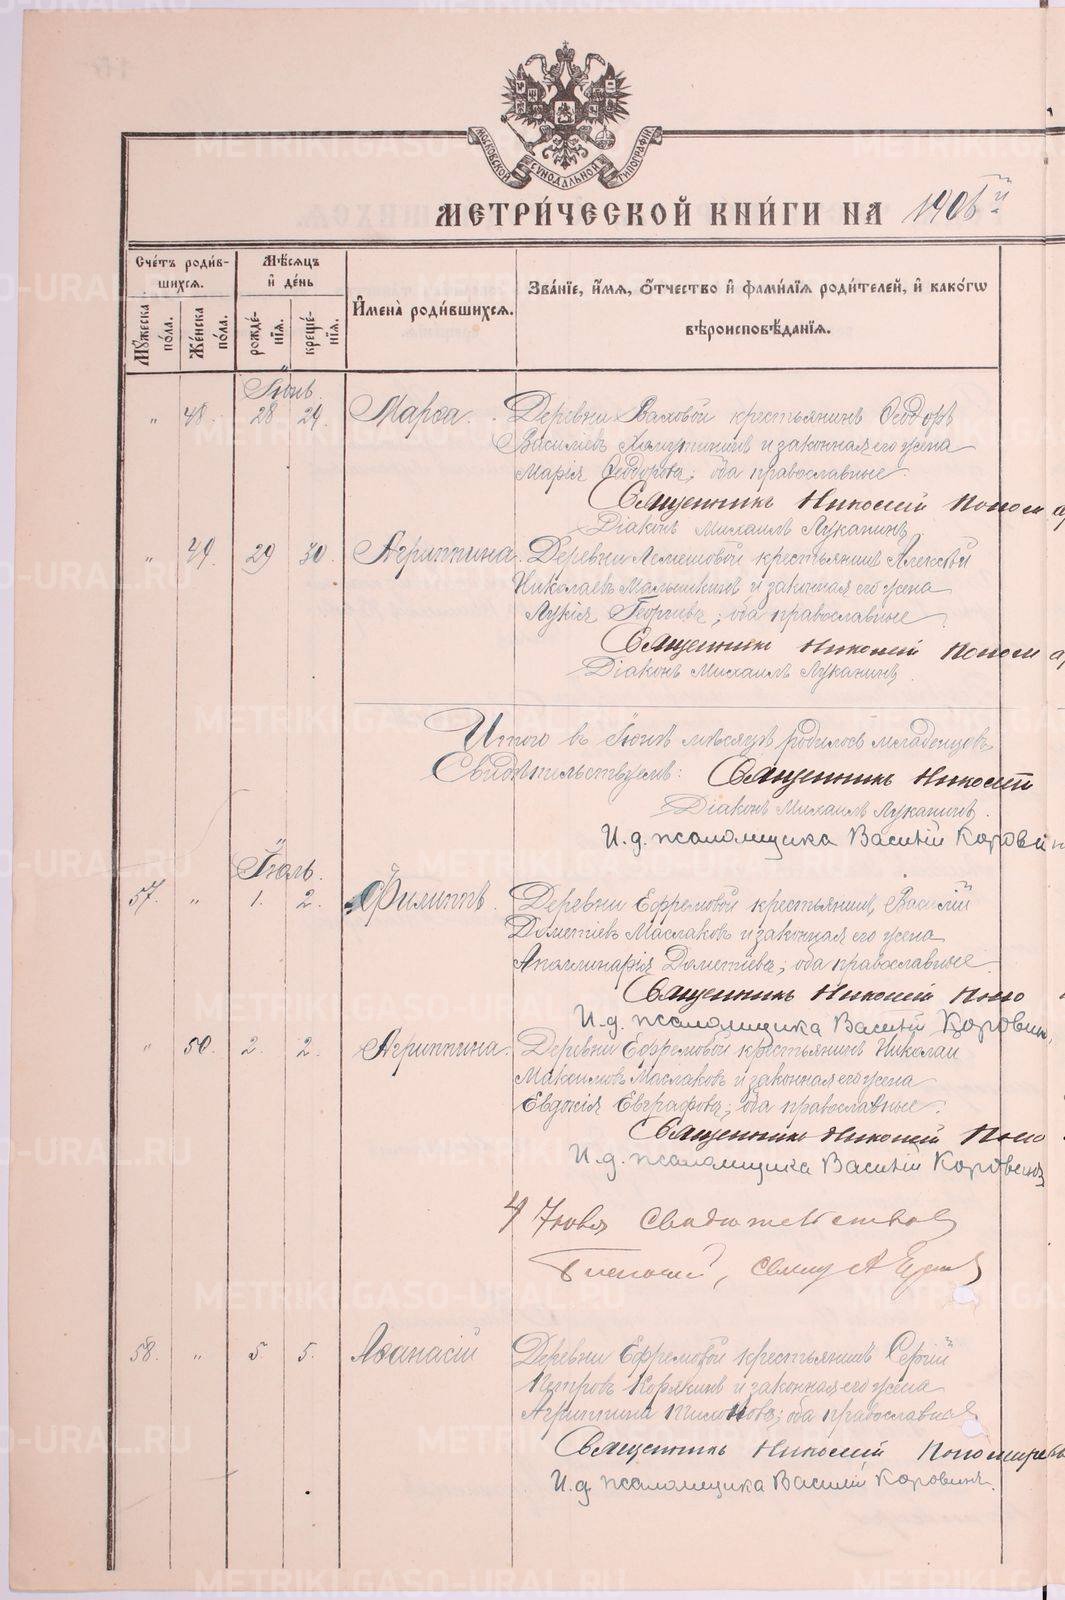 МОСКОВСКОЙ СѴНОДАЛЬНОЙ ТИПОГРАФІИ
МЕТРИ́ЧЕСКОЙ КНИ́ГИ НА 190
Сче́тъ роди́в-
шихсѧ.
Мѣ́сѧцъ
и҆ де́нь
И҆мена̀ роди́вшихсѧ.
Зва́ніе, и҆́мѧ, ѻ҆́тчество и҆ фами́лїѧ роди́телей, и҆ како́гѡ
вѣроисповѣ́данїѧ.
Мꙋ́жеска
по́ла.
Же́нска
по́ла.
рожде́-
нїѧ.
креще́-
нїѧ.
Іюнь.
" 48. 28 29. Марѳа. Деревни Валовой крестьянинъ Ѳеодоръ
Василіевъ и законная его жена
Марія Ѳеодорова; оба православные.
Священникъ Николай Понома
Діаконъ Михаилъ Луканинъ.
" 49. 29 30. Агриппина. Деревни Лемешовой крестьянинъ Алексѣй
Николаевъ Малышкинъ и законная его жена
Лукія Георгіева; оба православные.
Священникъ Николай Понома
Діаконъ Михаилъ Луканинъ.
Итого въ Іюнѣ мѣсяцѣ родилось младенцовъ
Свидѣтельствуемъ: Священникъ Николай
Діаконъ Михаилъ Луканинъ.
И.д. псаломщика Василій Коровин
Іюль.
57. " 1. 2. Филиппъ. Деревни Ефремовой крестьянинъ Василій
Дометіевъ Маслаковъ и законная его жена
Аполлинарія Дометіева; оба православные.
Священникъ Николай Поно
И.д. псаломщика Василій Коровин
" 50. 2. 2. Агриппина. Деревни Ефремовой крестьянинъ Николай
Максимовъ Маслаковъ и законная его жена
Евдокія Евграфова; оба православные.
Священникъ Николай Поно
И.д. псаломщика Василій Коровинъ
4 Іюля
58. " 5. 5. Аѳанасій Деревни Ефремовой крестьянинъ Сергій
Петровъ Корякинъ и законная его жена
Агриппина Тихонова; оба православная
Священникъ Николай Пономарев
И.д. псаломщика Василій Коровинъ.
METRIKI.GASO-URAL.RU